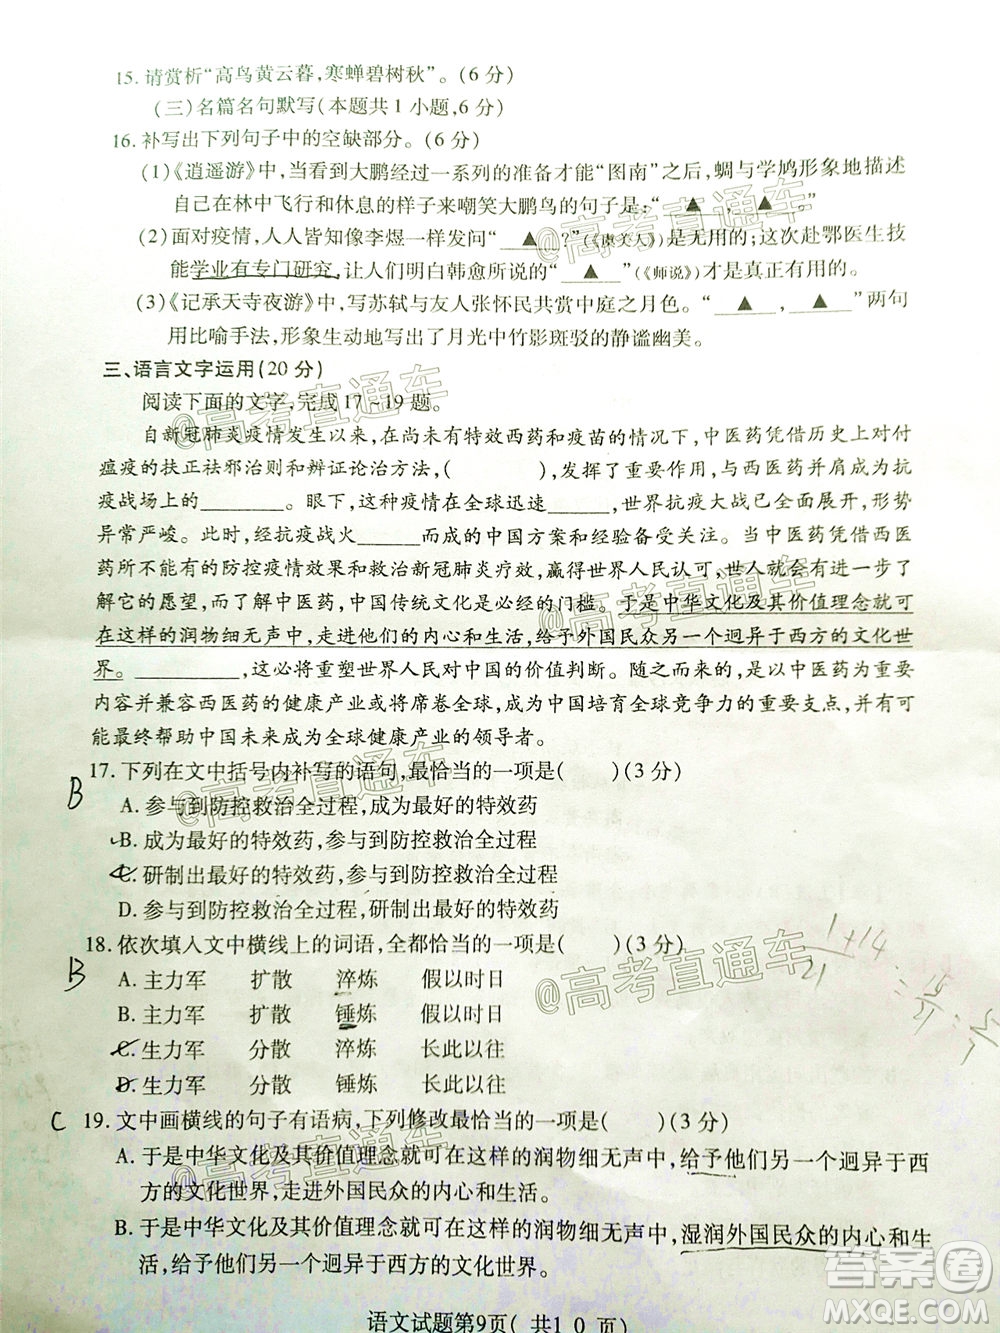 15. 请赏析“高鸟黄云暮,寒蝉碧树秋”。(6 分)
(三)名篇名句默写(本题共 1 小题,6 分)
16. 补写出下列句子中的空缺部分。(6 分)
(1)《逍遥游》中,当看到大鹏经过一系列的准备才能“图南”之后,蜩与学鸠形象地描述
自己在林中飞行和休息的样子来嘲笑大鹏鸟的句子是:“ ▲ , ▲ ”
(2)面对疫情,人人皆知像李煜一样发问“ ▲ ?”(《虞美人》)是无用的;这次赴鄂医生技
能学业有专门研究,让人们明白韩愈所说的“ ▲ ”(《师说》)才是真正有用的。
(3)《记承天寺夜游》中,写苏轼与友人张怀民共赏中庭之月色。“ ▲ , ▲ ”两句
用比喻手法,形象生动地写出了月光中竹影斑驳的静谧幽美。
三、语言文字运用(20 分)
阅读下面的文字,完成 17～19 题。
自新冠肺炎疫情发生以来,在尚未有特效西药和疫苗的情况下,中医药凭借历史上对
瘟疫的扶正祛邪治则和辨证论治方法,( ),发挥了重要作用,与西医药并肩成为抗
疫战场上的________。眼下,这种疫情在全球迅速________,世界抗疫大战已全面展开,形势
异常严峻。在抗疫战火______而成的中国方案和经验备受关注。当中医药凭借西医
药所不能有的防控疫情效果和救治新冠肺炎疗效,赢得世界人民认可,世人当有进一步了
解它的愿望,而了解中医药,中国传统文化是必经的门槛。于是中华文化及其价值理念就可
在这样的润物细无声中,走进他们的内心和生活,给予外国民众另一个迥异于西方的文化世
界。__________,这必将重塑世界人民对中国的价值判断。随之而来的是以中医药为重要
内容并兼容西医药的健康产业或将席卷全球,成为中国培育全球竞争力的重要支点,并有可
能最终帮助中国未来成为全球健康产业的领导者。
B
17. 下列在文中括号内补写的语句,最恰当的一项是( )(3 分)
A. 参与到防控救治全过程,成为最好的特效药
B. 成为最好的特效药,参与到防控救治全过程
C. 研制出最好的特效药,参与到防控救治全过程
D. 参与到防控救治全过程,研制出最好的特效药
18. 依次填入文中横线上的词语,全都恰当的一项是( )(3 分)
B
A. 主力军 扩散 淬炼 假以时日
B. 主力军 扩散 锤炼 假以时日
C. 生力军 分散 淬炼 长此以往
D. 生力军 分散 锤炼 长此以往
C 19. 文中画横线的句子有语病,下列修改最恰当的一项是( )(3 分)
A. 于是中华文化及其价值理念就可在这样的润物细无声中,给予他们另一个迥异于西
方的文化世界,走进外国民众的内心和生活。
B. 于是中华文化及其价值理念就可在这样的润物细无声中,湿润外国民众的内心和生
活,给予他们另一个迥异于西方的文化世界。
语文试题第9页( 共1 0 页)
@高考直通车
@高考直通车
@高考直通车
@高考直通车
@高考直通车
@高考直通车
@高考直通车
答案圈
MXQE.COM